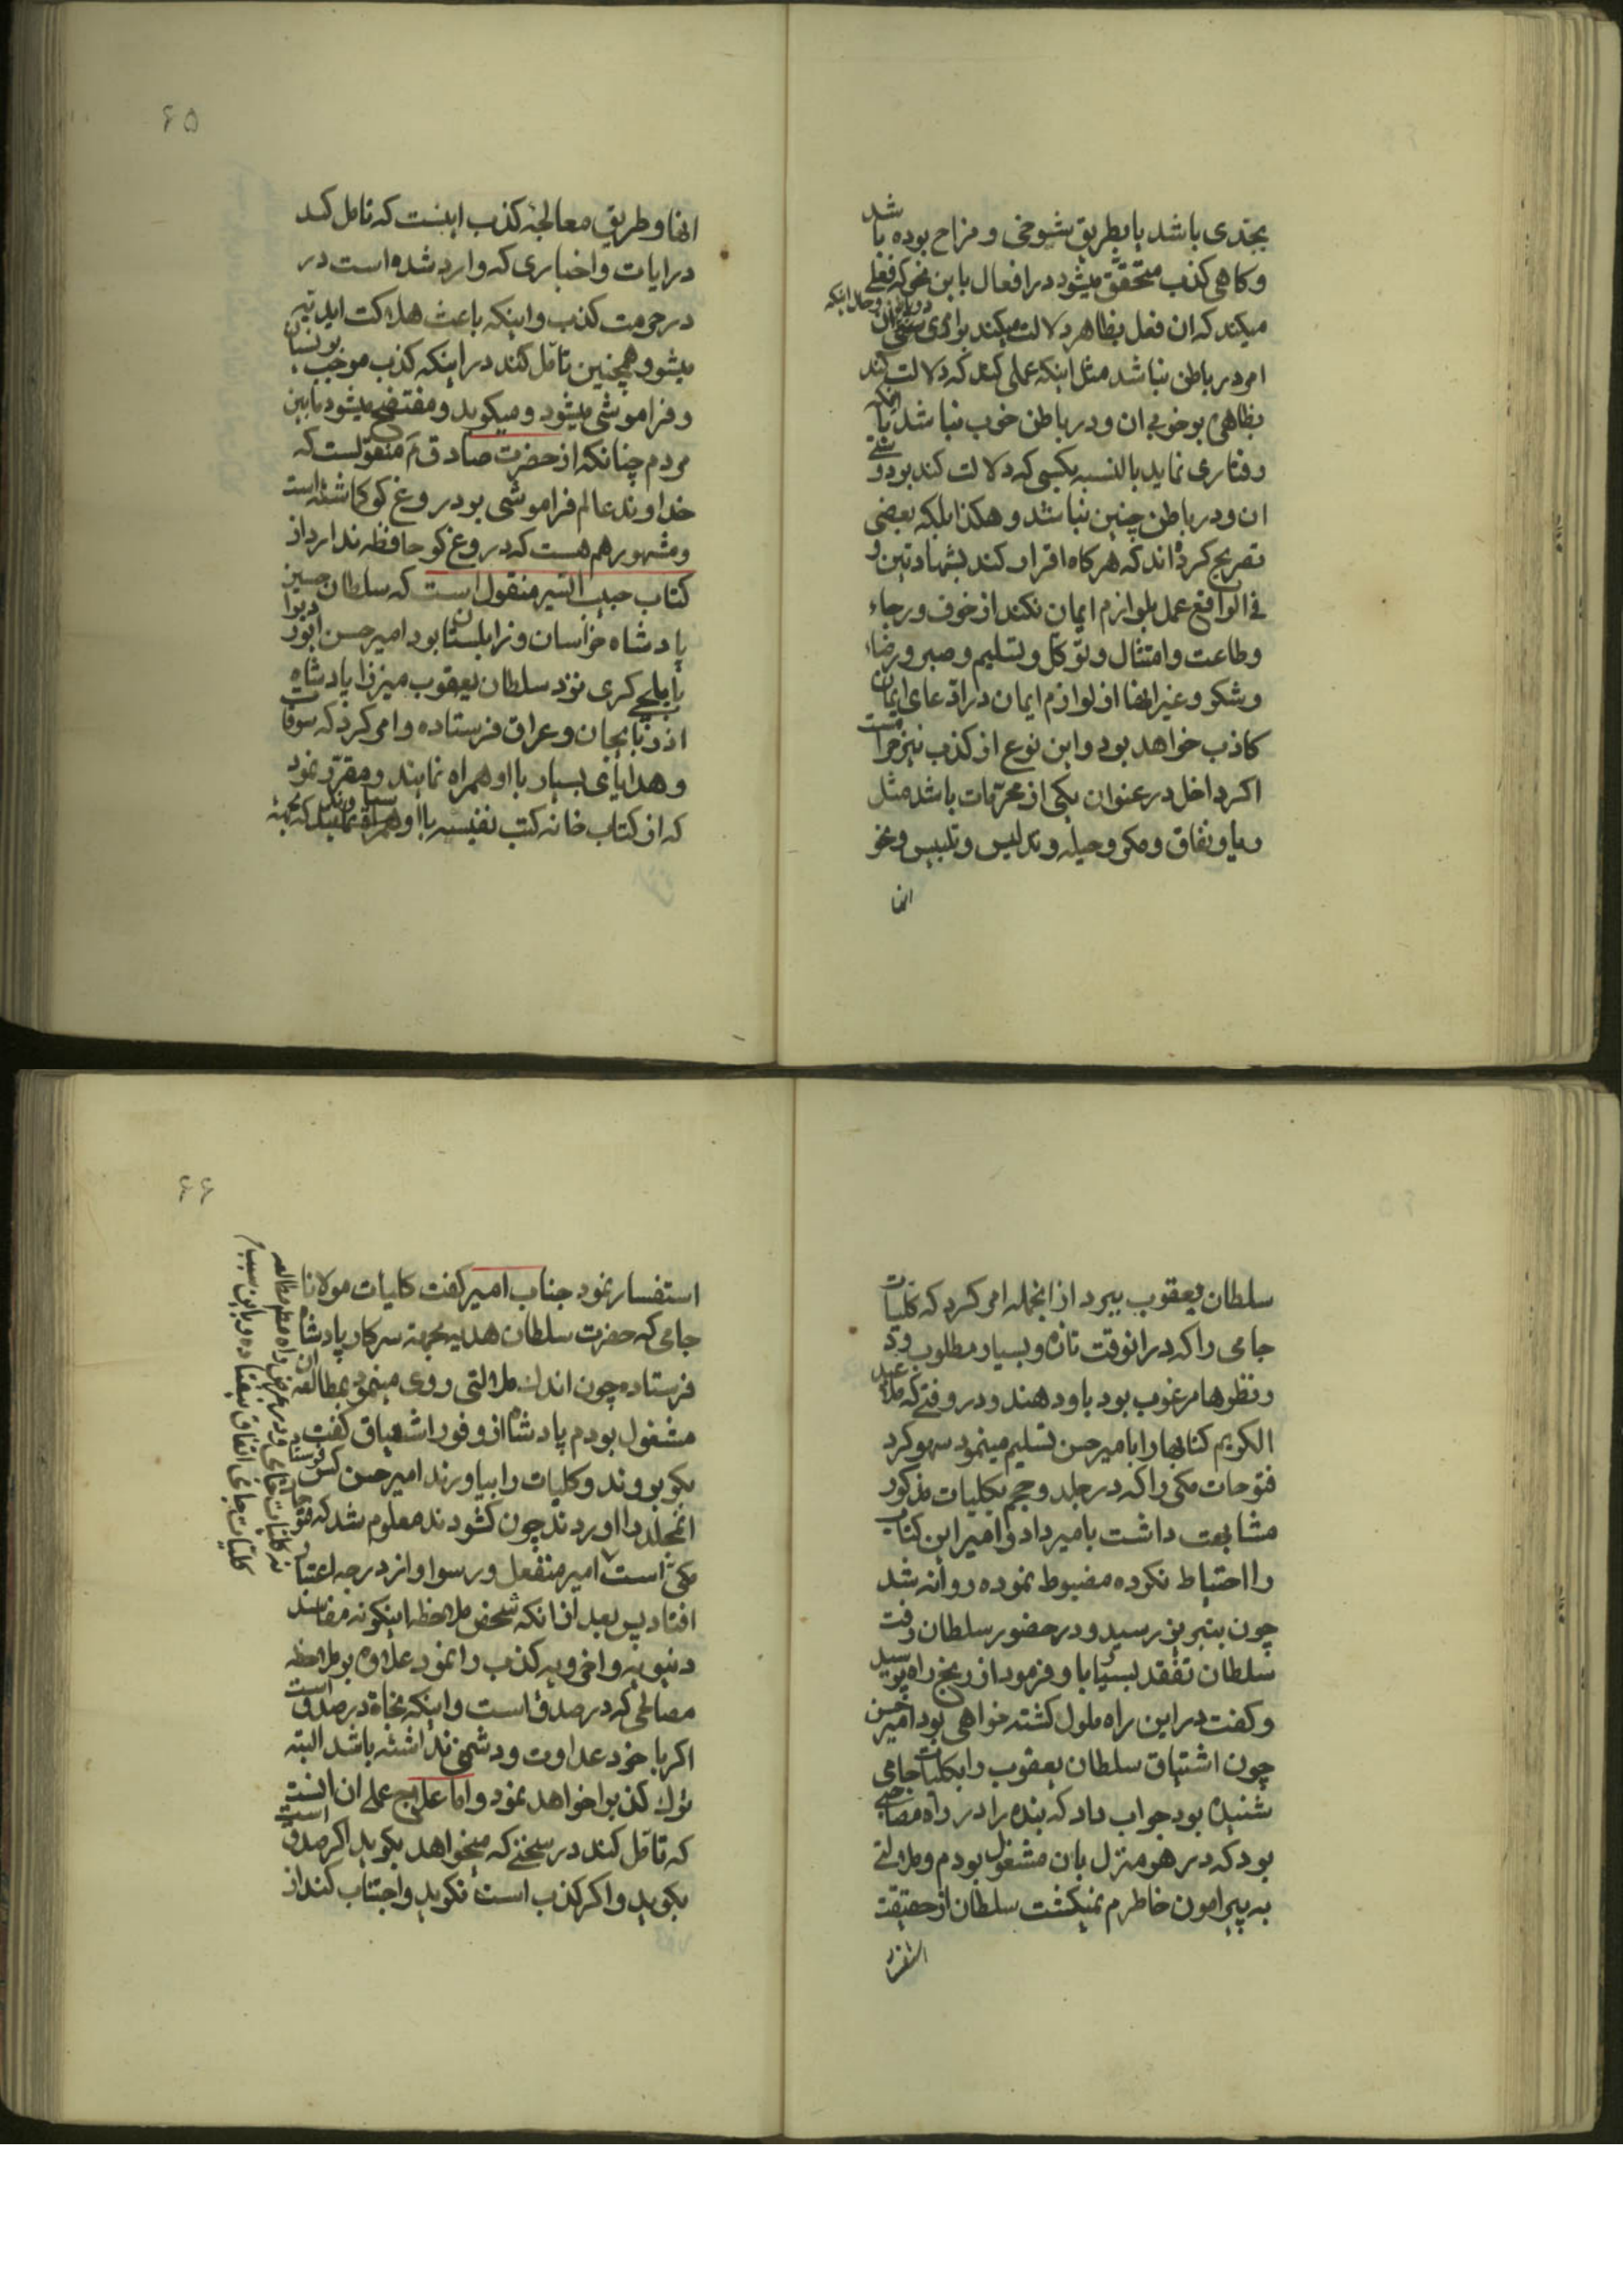 بجدی باشد یا بطریق شوخی و مزاح بوده باشد
و کاهی کذب متحقق میشود در افعال باین نحو که فعلی
میکند که ان فعل بظاهر دلالت میکند بر امری و حال اینکه ان
امر در باطن نباشد مثل اینکه عملی کند که دلالت کند
بظاهر بر خوبی ان و در باطن خوب نباشد یا انکه
رفتاری نماید بالنسبه بکسی که دلالت کند بر دوستی
ان و در باطن چنین نباشد و هکذا بلکه بعضی
تصریح کرده اند که هر کاه اقرار کند بشهادتین و
فی الواقع عمل بلوازم ایمان نکند از خوف و رجاء
و طاعت و امتثال و توکل و تسلیم و صبر و رضاء
و شکر و غیر انها از لوازم ایمان در ادعای ایمان
کاذب خواهد بود و این نوع از کذب نیز حرامست
اکر داخل در عنوان یکی از محرمات باشد مثل
ریا و نفاق و مکر و حیله و تدلیس و تلبیس و نحو
انها
۶۵
انها و طریق معالجهٔ کذب اینست که تامل کند
در ایات و اخباری که وارد شده است در
در حرمت کذب و اینکه باعث هلاکت ابدیه
میشود و همچنین تامل کند در اینکه کذب موجب نسیان
و فراموشی میشود و میکوید و مفتضح میشود مابین
مردم چنانکه از حضرت صادق ع منقولست که
خداوند عالم فراموشی بر دروغ کو کاشته است
و مشهور هم هست که دروغ کو حافظه ندارد از
کتاب حبیب السیر منقول است که سلطان حسین
پادشاه خراسان و زابلستان بود امیر حسن ابیوردی را
بایلچی کری نزد سلطان یعقوب میرزا پادشاه
اذربایجان و عراق فرستاده و امر کرد که سوقات
و هدایای بسیار با او همراه نمایند و مقرر نمود
که از کتاب خانه کتب نفیسه با او همراه نمایند که بجهة
سلطان یعقوب ببرد از انجمله امر کرد که کلیات
جامی را که در انوقت تازه و بسیار مطلوب بود
و نظرها مرغوب بود باو دهند و در وقتی که ملا عبد
الکریم کتابها را بامیر حسن تسلیم مینمود سهو کرد
فتوحات مکی را که در جلد و حجم بکلیات مذکور
مشابهت داشت بامیر داد و امیر این کتاب
را احتیاط نکرده مضبوط نموده روانه شد
چون بتبریز رسید و در حضور سلطان رفت
سلطان تفقد بسیار باو فرمود از رنج راه پرسید
و کفت در این راه ملول کشته خواهی بود امیر حسن
چون اشتیاق سلطان یعقوب را بکلیات جامی
شنیده بود جواب داد که بنده را در راه مصاحبی
بود که در هر منزل بان مشغول بودم و ملالتی
به پیرامون خاطرم نمیکشت سلطان از حقیقت
استفسار
۶۶
استفسار نمود جناب امیر کفت کلیات مولانا
جامی که حضرت سلطان هدیه بجهة سرکار پادشاه
فرستاده چون اندک ملالتی روی مینمود بمطالعه ان
مشغول بودم پادشاه از وفور اشتیاق کفت
بکو بروند و کلیات را بیاورند امیر حسن کس فرستاد
انمجلد را اوردند چون کشودند معلوم شد که فتوحات
مکی است امیر منفعل و رسوا و از درجه اعتبار
افتاد پس بعد از انکه شخص ملاحظه اینکونه مفاسد
دنیویه و اخرویه کذب را نمود علاوه بر ملاحظه
مصالحی که در صدق است و اینکه نجاة در صدق است
اکر با خود عداوت و دشمنی نداشته باشد البته
ترک کذب را خواهد نمود و اما علاج عملی ان انست
که تامل کند در سخنی که میخواهد بکوید اکر صدق است
بکوید و اکر کذب است نکوید و اجتناب کند از